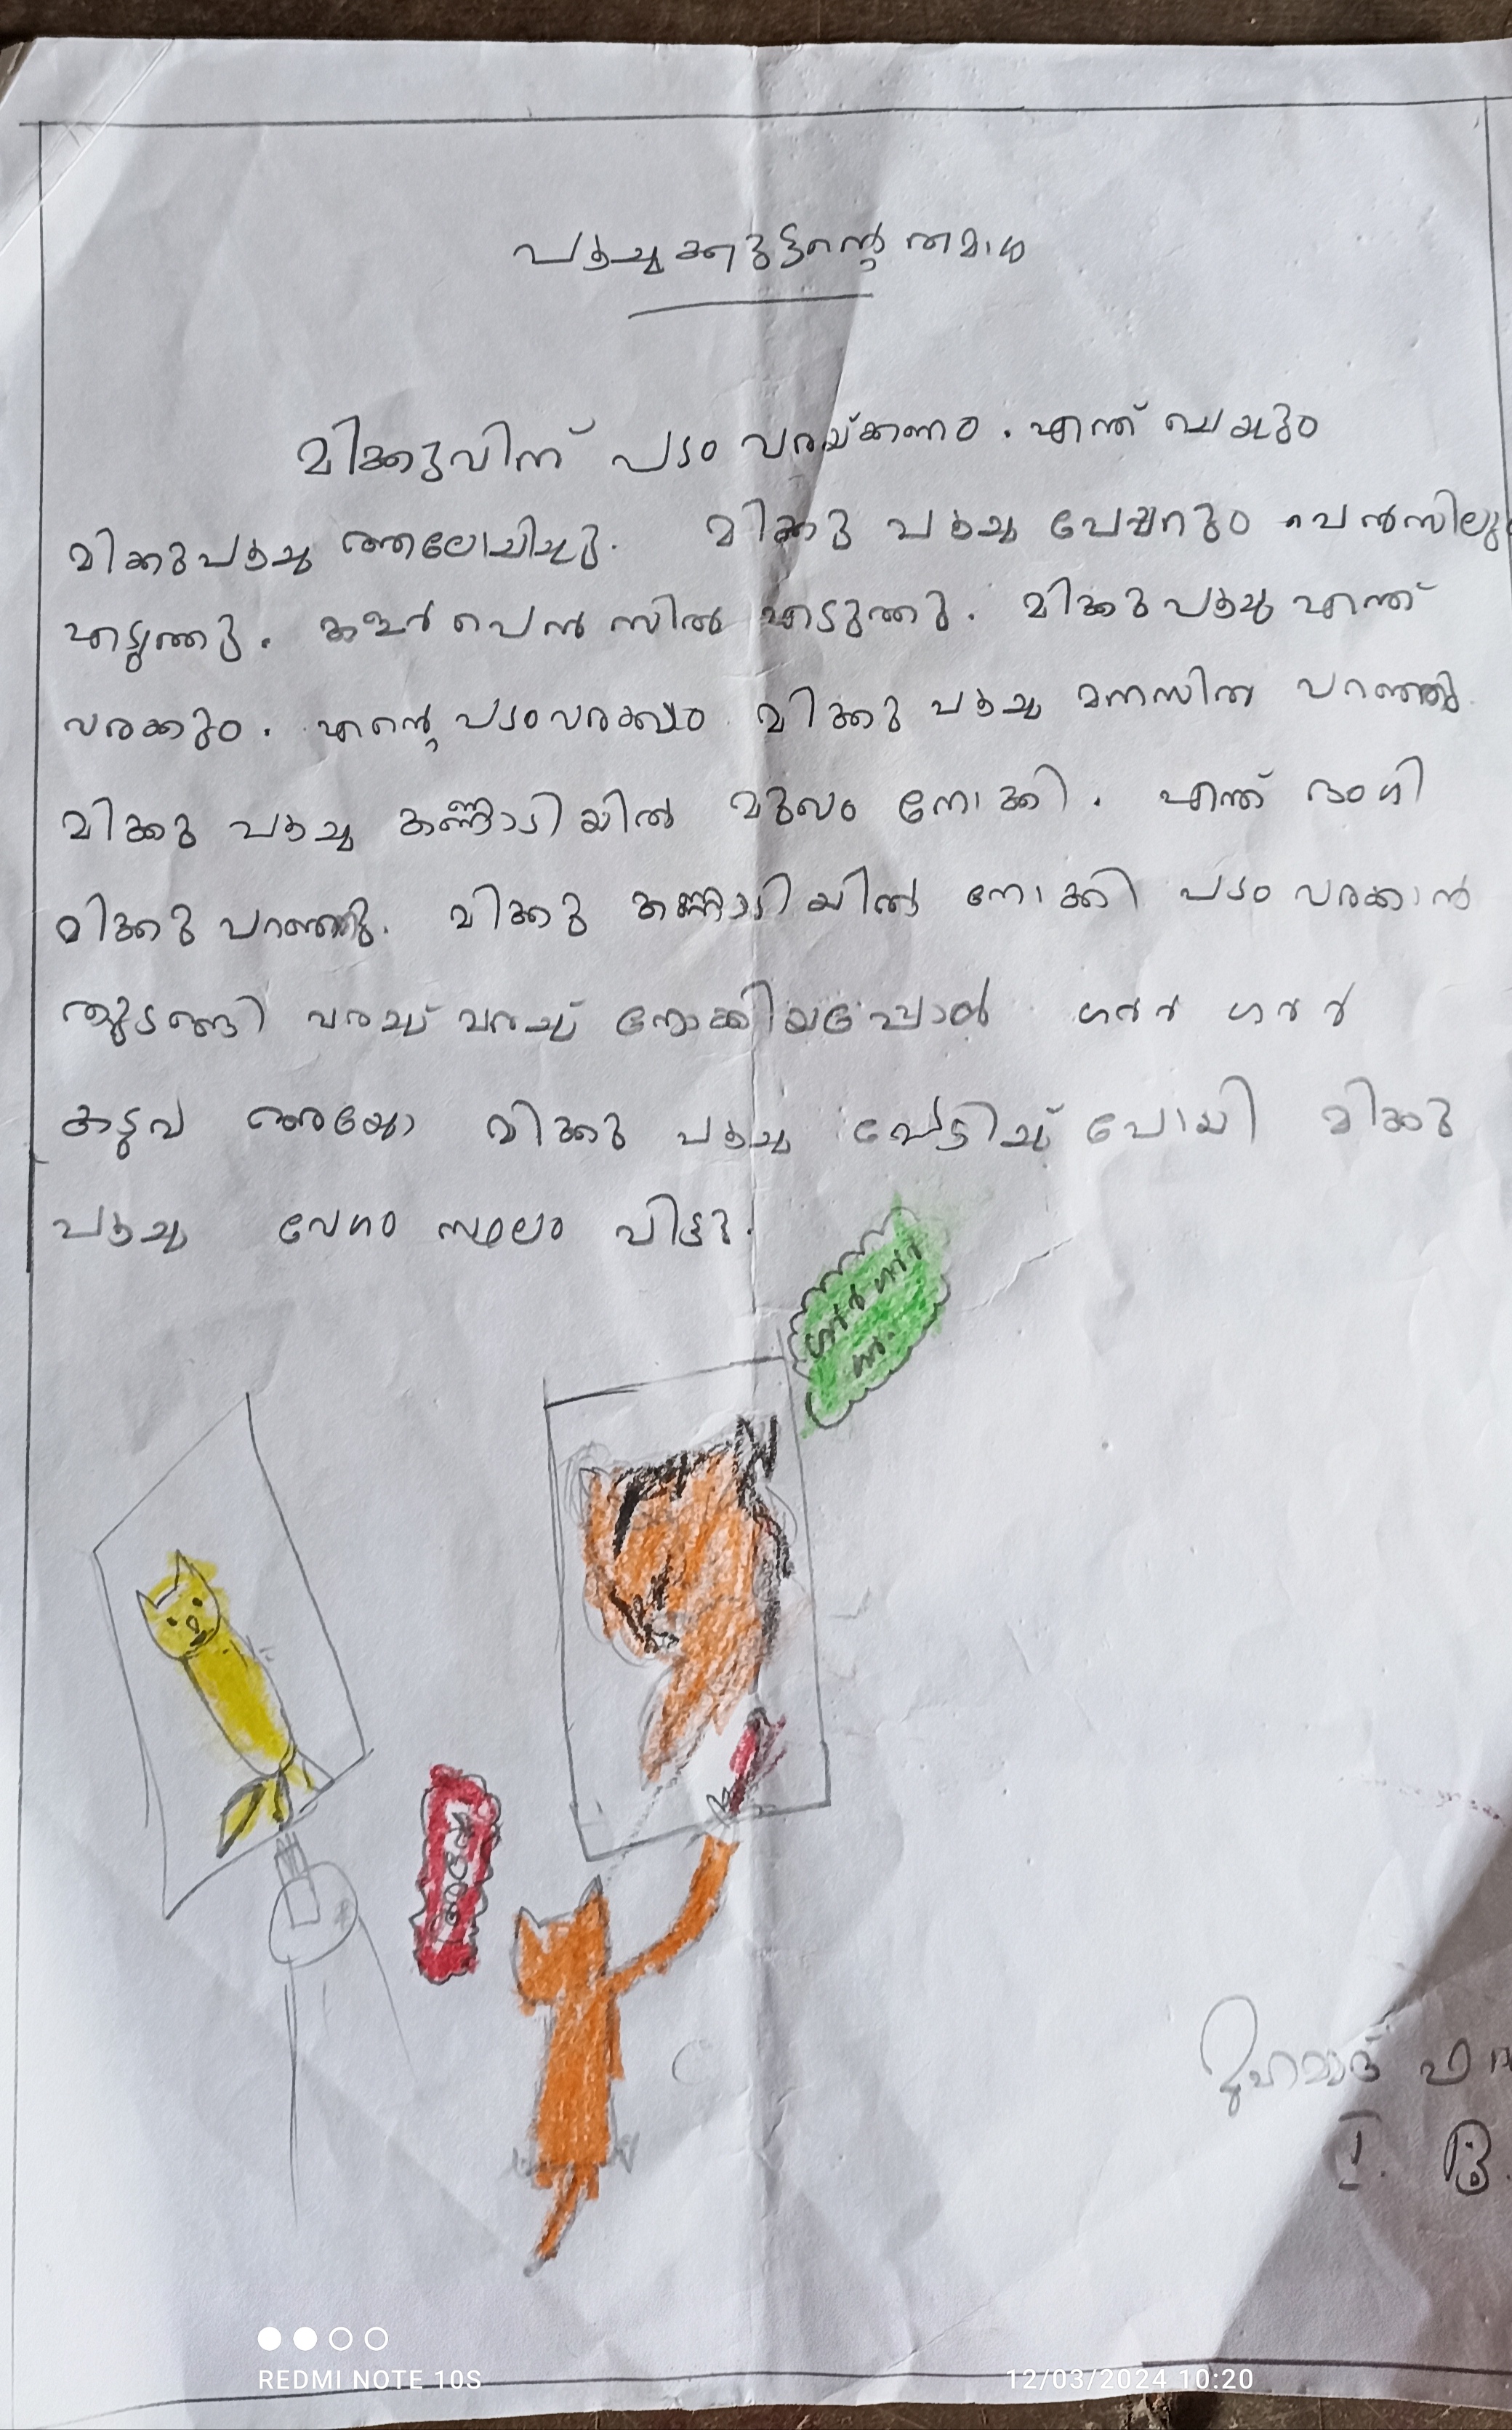 പൂച്ചക്കുട്ടന്റെ തമാശ
മിക്കുവിന് പടം വരയ്ക്കണം. എന്ത് ചെയ്യും
മിക്കുപൂച്ച ആലോചിച്ചു. മിക്കു പൂച്ച പേപ്പറും പെൻസിലും
എടുത്തു. കളർ പെൻസിൽ എടുത്തു. മിക്കുപൂച്ച എന്ത്
വരക്കും. എന്റെ പടംവരക്കാം മിക്കു പൂച്ച മനസിൽ പറഞ്ഞു.
മിക്കു പൂച്ച കണ്ണാടിയിൽ മുഖം നോക്കി. എന്ത് ഭംഗി
മിക്കു പറഞ്ഞു. മിക്കു കണ്ണാടിയിൽ നോക്കി പടം വരക്കാൻ
തുടങ്ങി വരച്ച് വരച്ച് നോക്കിയപ്പോൾ ഗർർ ഗർർ
കടുവ അയ്യോ മിക്കു പൂച്ച പേടിച്ച് പോയി മിക്കു
പൂച്ച വേഗം സ്ഥലം വിട്ടു.
ഗർർ ഗർർ
മുഹമ്മദ്
I. B.
REDMI NOTE 10S 12/03/2024 10:20